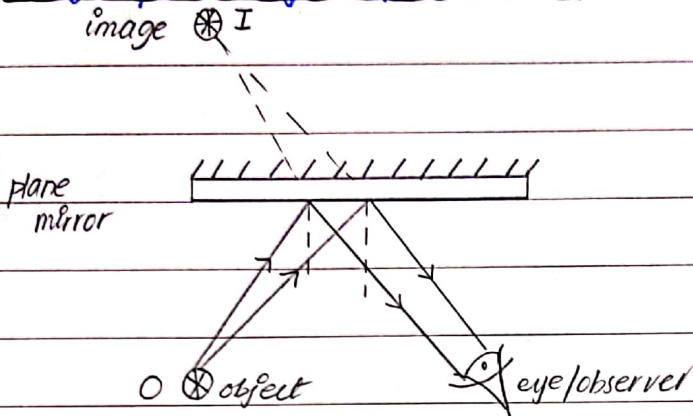 image I
plane
mirror
O object
eye/observer